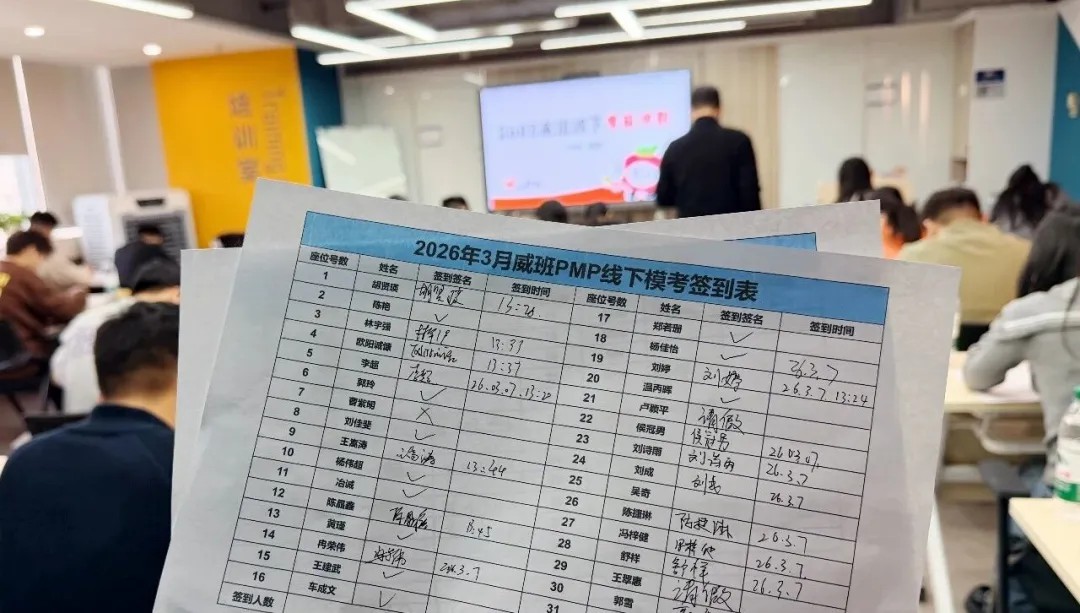 培训室
Training
2026年3月威班PMP线下模考签到表
座位号数 姓名 签到签名 签到时间 座位号数 姓名 签到签名 签到时间
1 13:20 17 郑若珊 ✓
2 陈艳 ✓ 18 杨佳怡 ✓ 26.3.7
3 林宇强 13:37 19 刘婷 刘婷 26.3.7 13:24
4 欧阳诚谦 13:37 20 温丙晖 ✓
5 李超 李超 26.03.07.13:20 21 卢顺平 请假
6 郭玲 ✓ 22 侯冠男 侯冠男 26.03.07
7 曹紫明 X 23 刘诗雨 刘诗雨 26.3.7
8 刘佳斐 ✓ 24 刘成 刘成 26.3.7
9 13:44 25 吴奇
10 杨伟超 ✓ 26 陈捷琳 陈捷琳 26.3.7
11 冶诚 ✓ 27 冯梓健 26.3.7
12 8:45 28 舒祥 舒祥 26.3.7
13 黄瑾 ✓ 29 王翠惠 请假
14 冉荣伟 26.3.7 30 郭雪
15 王建武 ✓ 31
16 车成文 ✓
签到人数